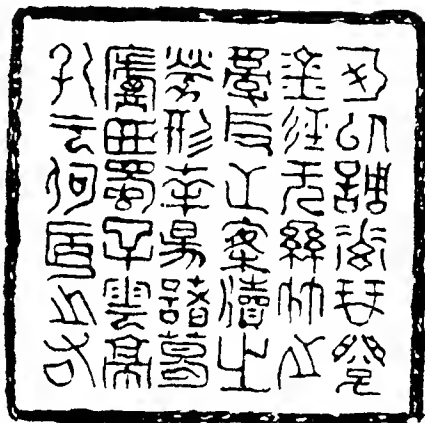 可以調素琴閱
金經无絲竹之
亂耳亡案牘之
勞形南陽諸葛
廬西蜀子雲亭
孔云何陋之有